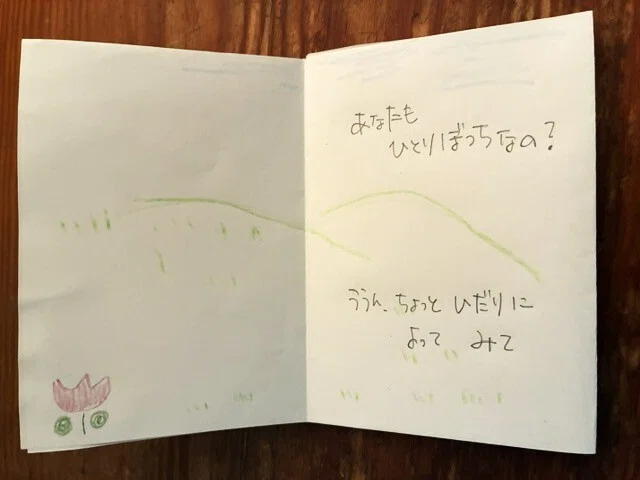 あなたも
ひとりぼっちなの？
ううん、ちょっと ひだりに
よって みて